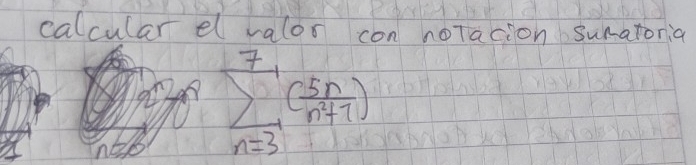 calcular el valor con notacion sumatoria
7
∑ (5n/n²+7)
n=3